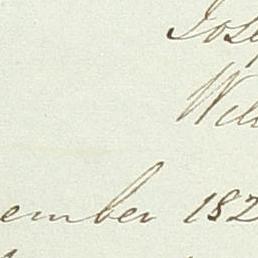 Jose
Will
ember 182